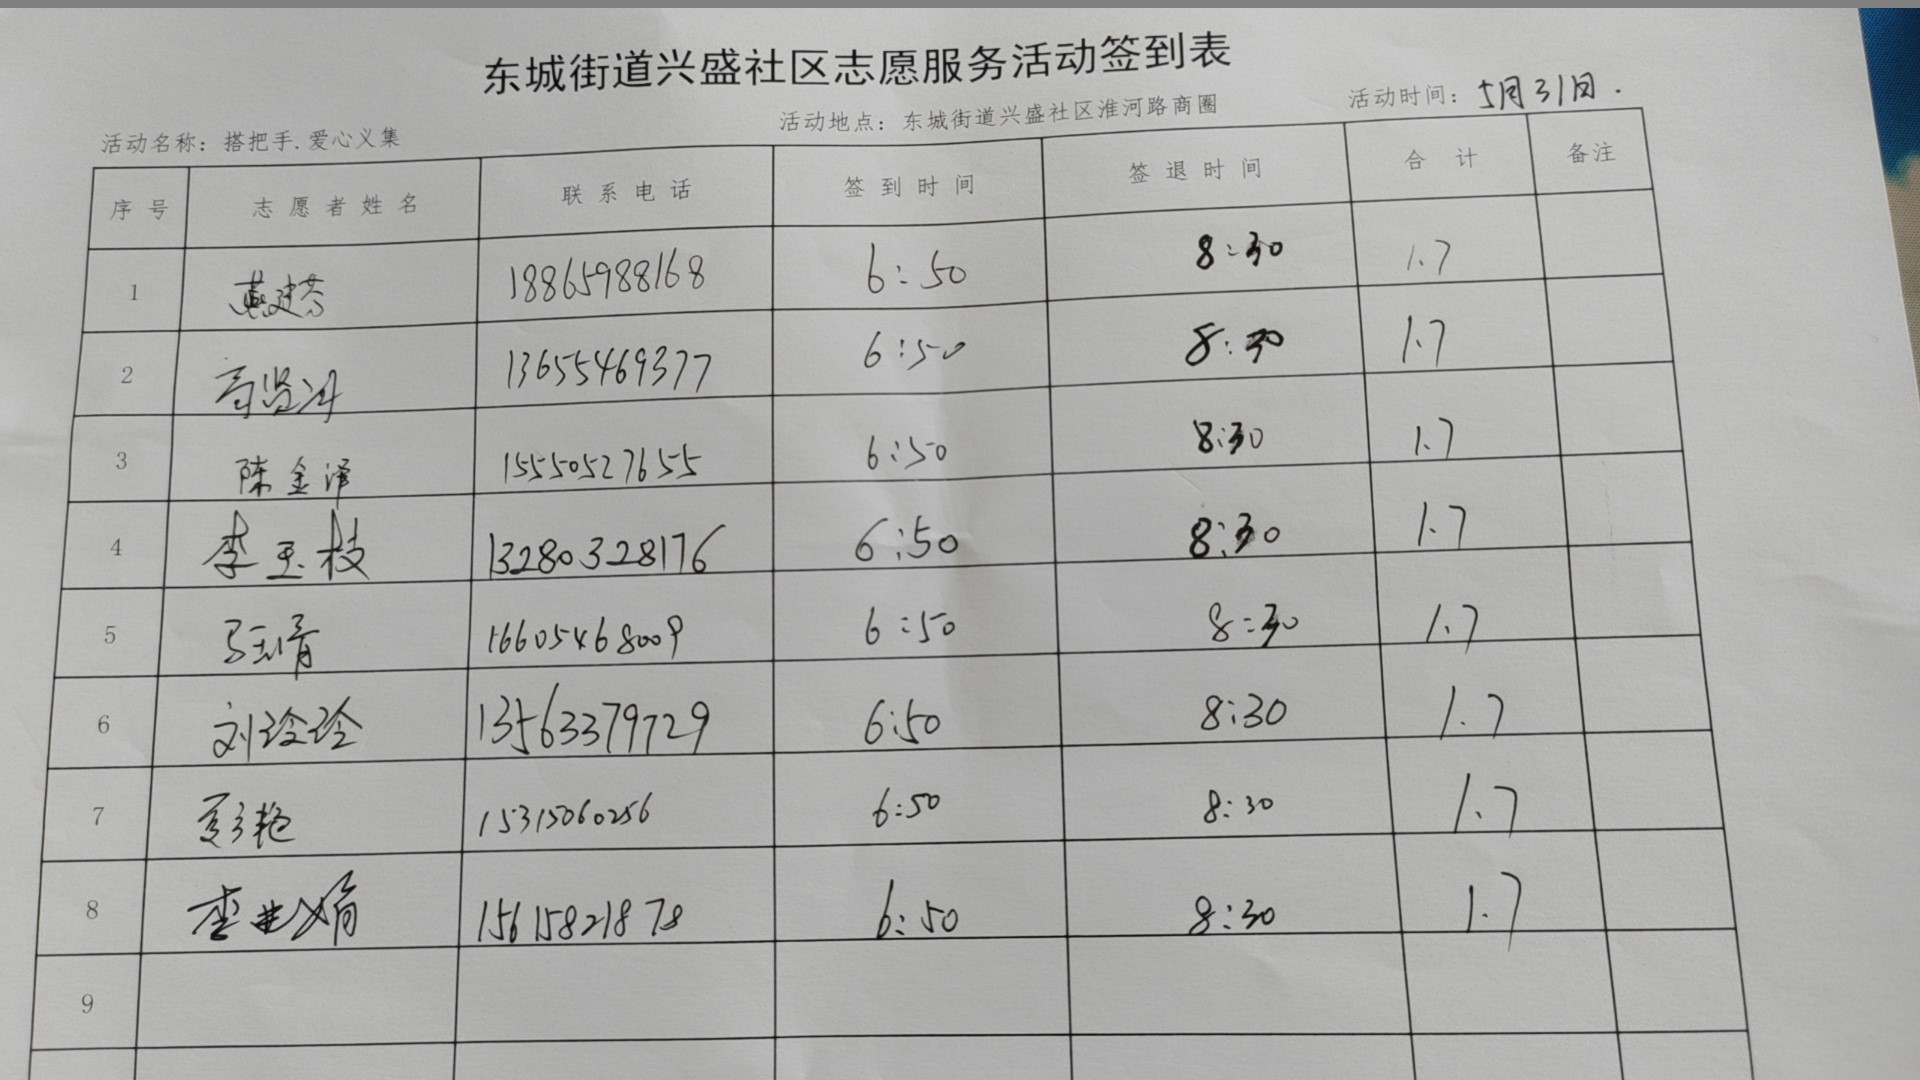 东城街道兴盛社区志愿服务活动签到表
活动名称：搭把手.爱心义集 活动地点：东城街道兴盛社区淮河路商圈 活动时间：5月31日.
序号 志愿者姓名 联系电话 签到时间 签退时间 合计 备注
1 18865988168 6:50 8:30 1.7
2 13655469377 6:50 8:30 1.7
3 陈金泽 15550527655 6:50 8:30 1.7
4 李玉枝 13280328176 6:50 8:30 1.7
5 16605468009 6:50 8:30 1.7
6 刘玲玲 13563379729 6:50 8:30 1.7
7 彭艳 15315060256 6:50 8:30 1.7
8 15615821878 6:50 8:30 1.7
9